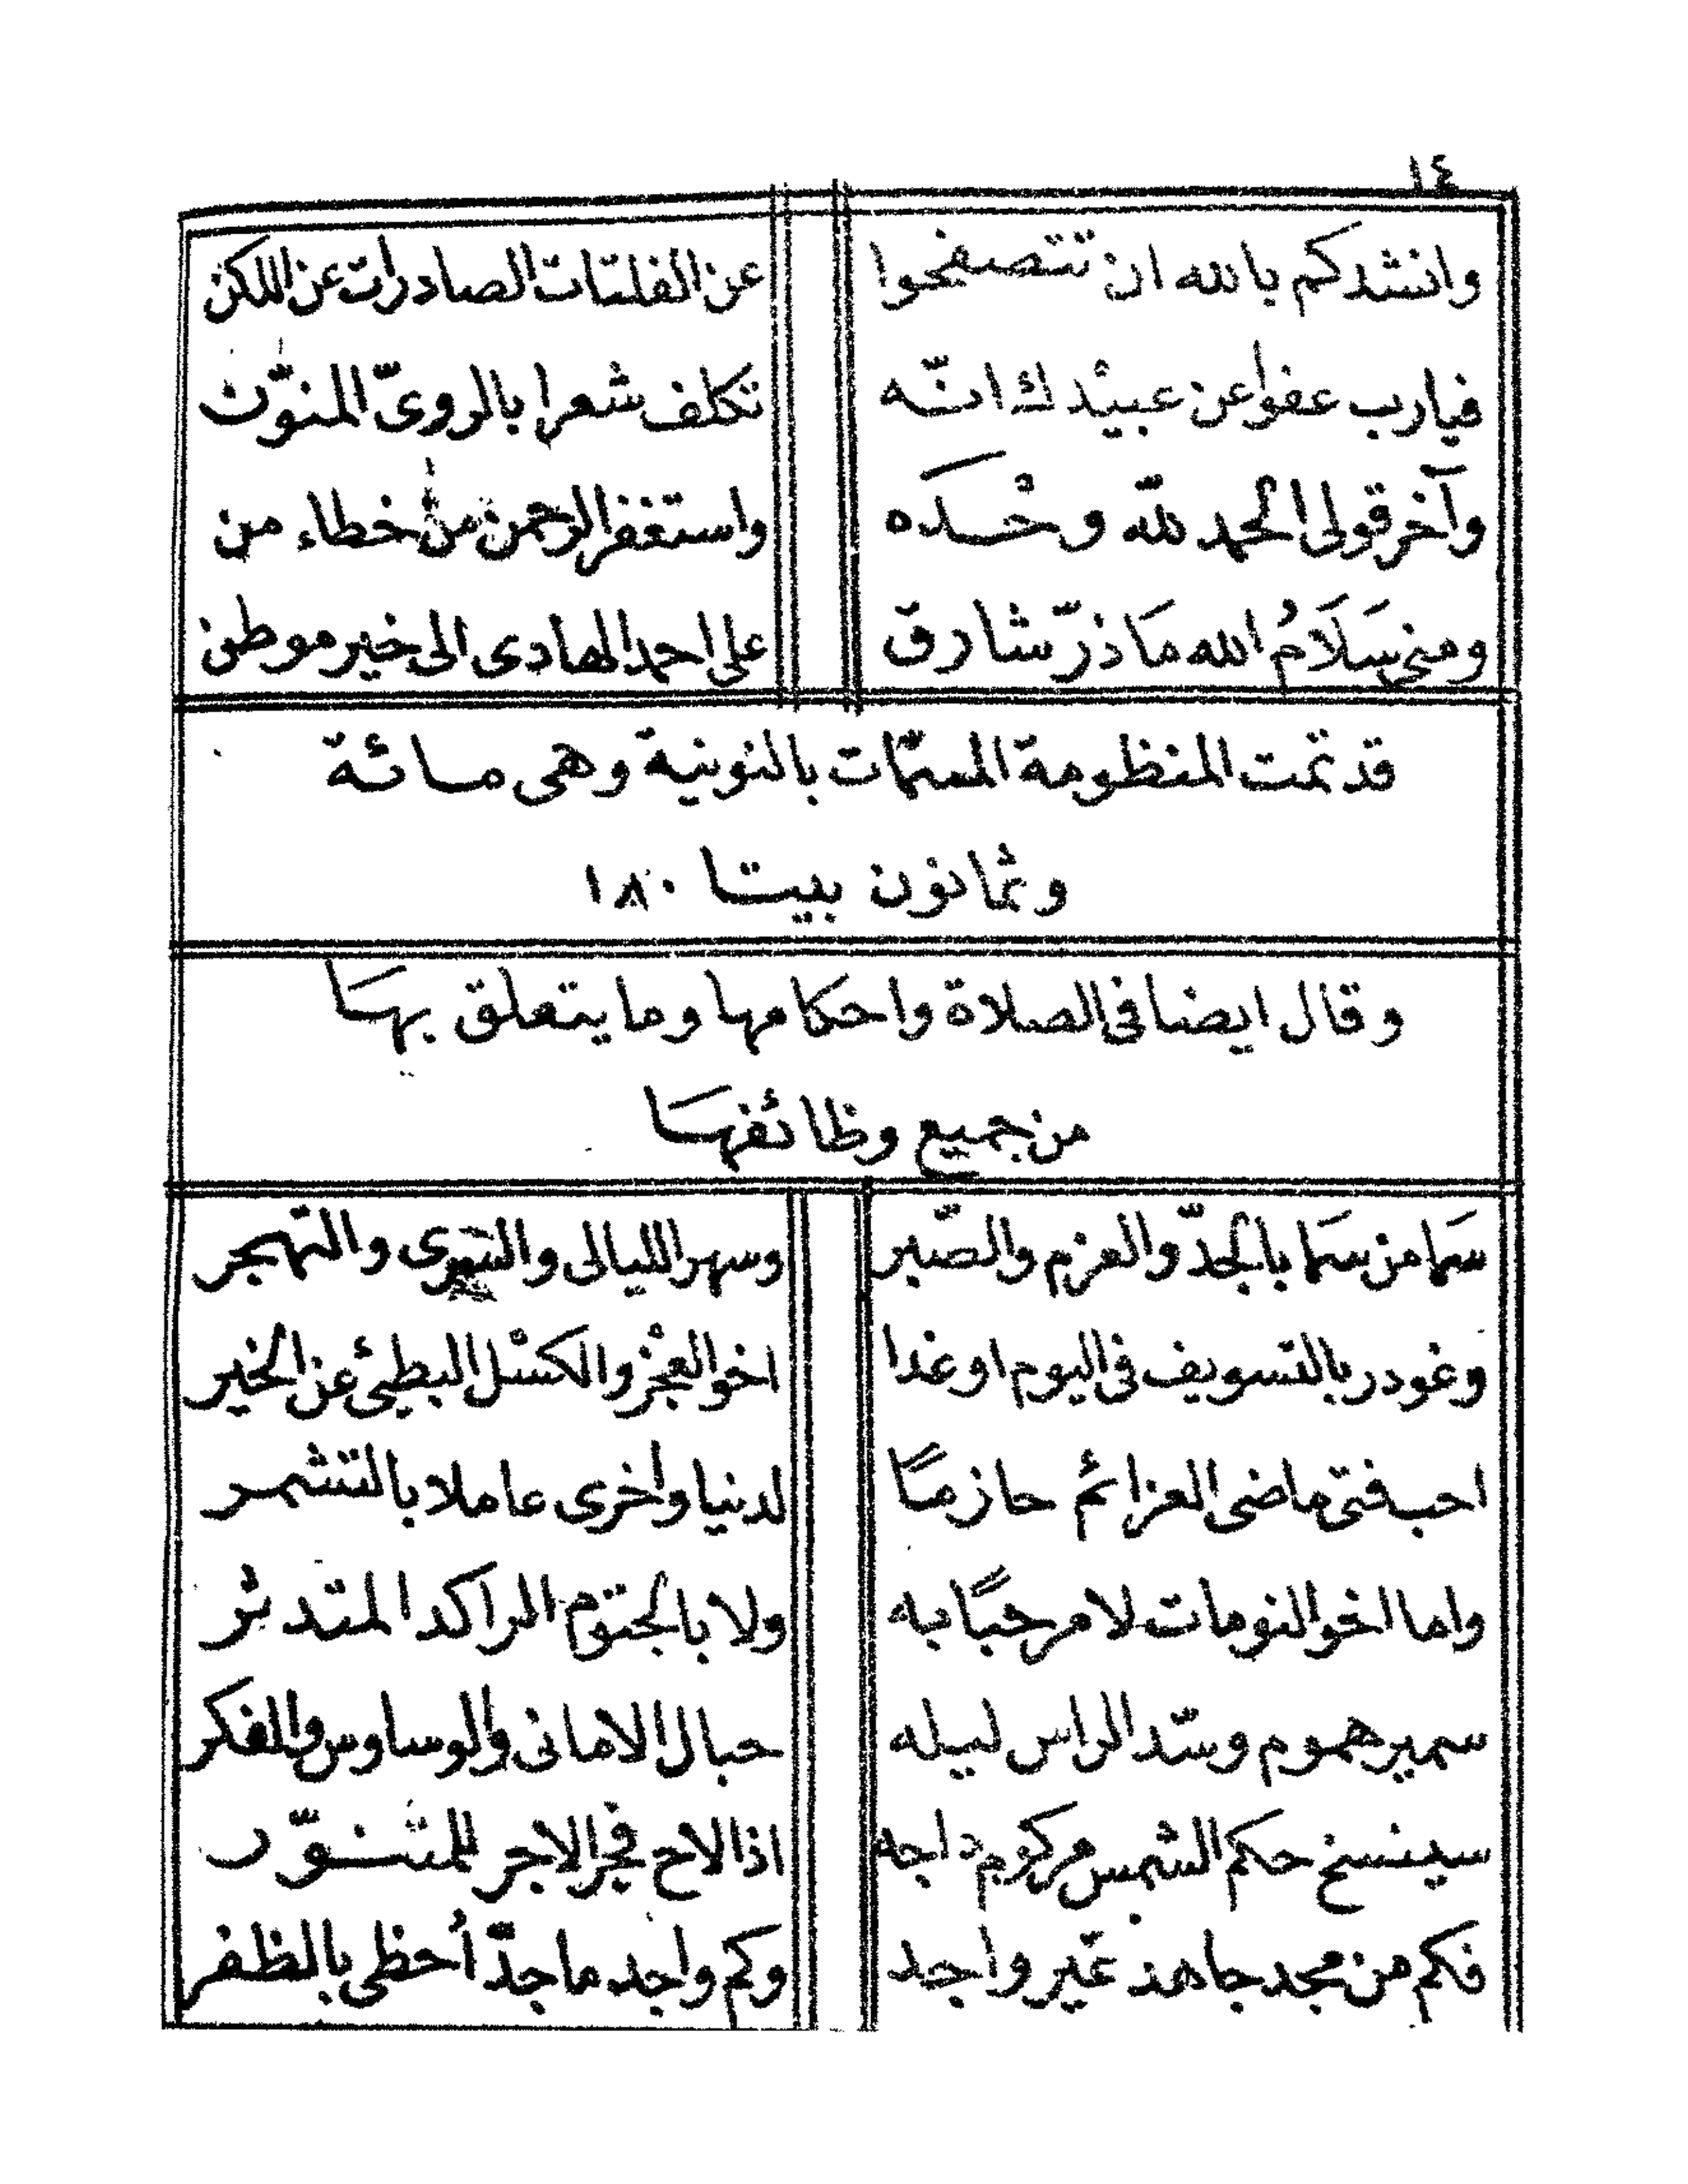 ١٤
وانشدكم بالله ان تتصفحوا عن الفلتات الصادرات عن اللكن
فيارب عفوا عن عبيْدك انّه تكلف شعرا بالروىّ المنوّن
وآخر قولى الحمد للّه وحْدَه واستغفر الرحمن من خطاء من
ومنى سَلَامُ الله مَا ذرّ شارق على احمد الهادى الى خير موطن
قد تمت المنظومة المسمّات بالنونية وهى مائة
وثمانون بيتا ١٨٠
وقال ايضا فى الصلاة واحكامها وما يتعلق بهَا
من جميع وظائفهَا
سَما من سَما بالجدّ والعزم والصّبر وسهر الليالى والسرى والتهجر
وغودر بالتسويف فى اليوم او غدا اخو العجْز والكسْل البطئ عن الخير
احب فتى ماضى العزائم حازمًا لدنيا واخرى عاملا بالتشمر
واما اخو النومات لا مرحبًا به ولا بالجثوم الراكد المتدثر
سمير هموم وسّد الراس ليله حبال الامانى والوساوس والفكر
سينسخ حكم الشمس مركوم داجه اذا لاح فجر الاجر للمتنوّر
فكم من مجد جاهد غير واجد وكم واجد ما جدّ أحظى بالظفر